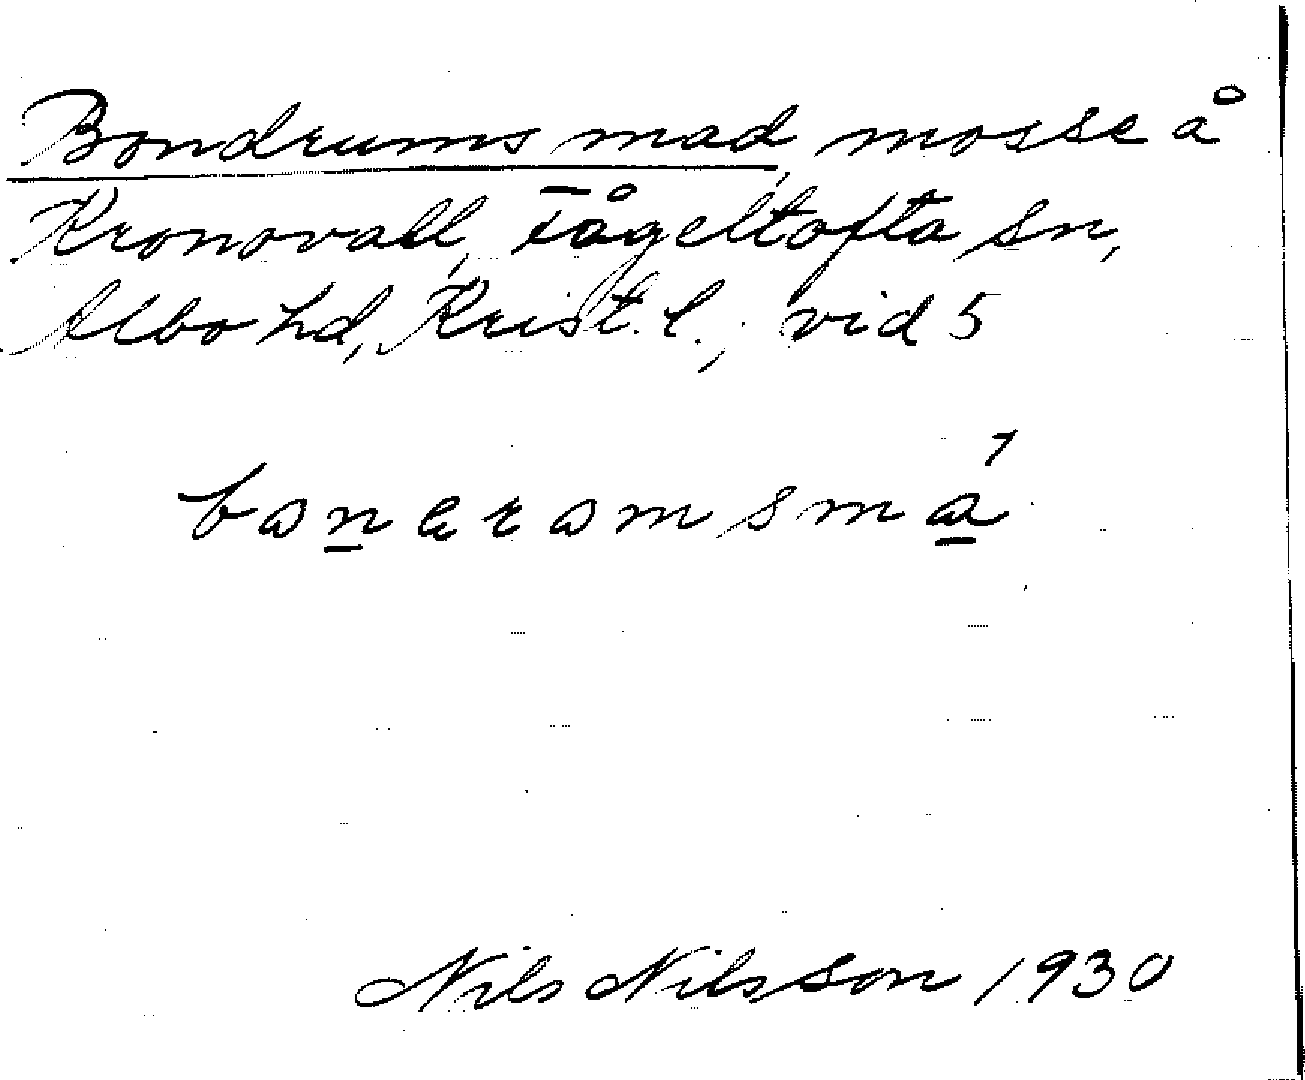 Bondrums mad, mosse å
Kronovall, Fågeltofta sn,
Albo hd, Krist. l., vid 5
Nils Nilsson 1930